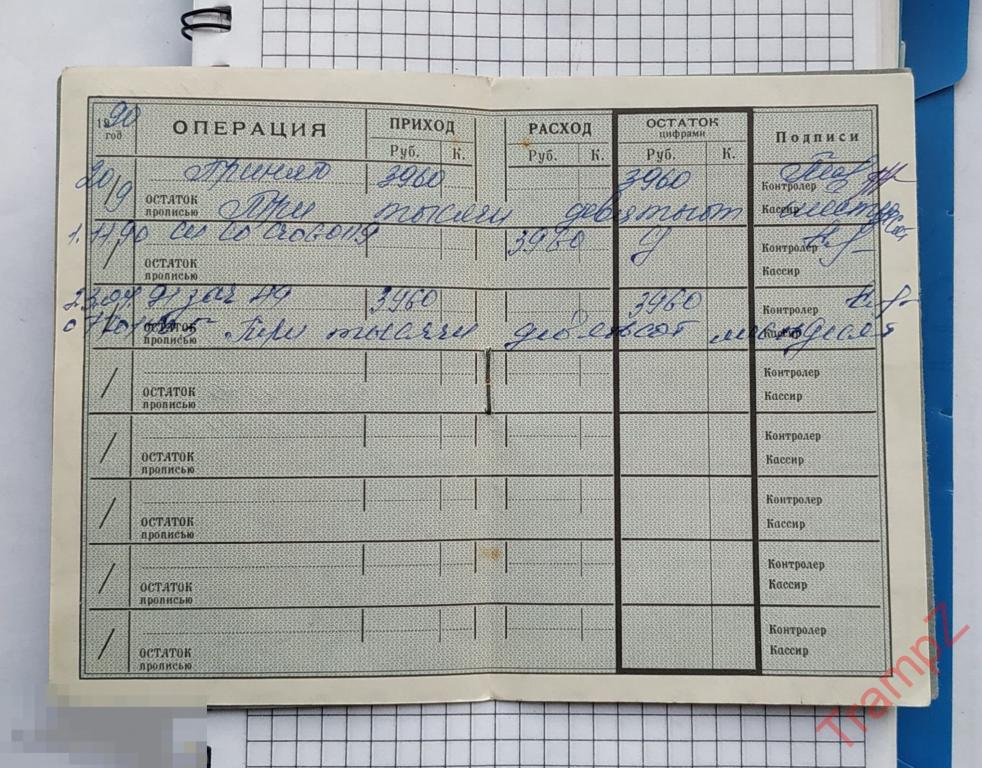 1990 год ОПЕРАЦИЯ ПРИХОД РАСХОД ОСТАТОК цифрами Подписи
Руб. К. Руб. К. Руб. К.
20/9 Принято 3960 3960 Контролер
ОСТАТОК прописью Три тысячи девятьсот Кассир
1.11.90 3960 Контролер
ОСТАТОК прописью Кассир
3960 3960 Контролер
ОСТАТОК прописью Три тысячи девятьсот шестьдесят Кассир
/ Контролер
ОСТАТОК прописью Кассир
/ Контролер
ОСТАТОК прописью Кассир
/ Контролер
ОСТАТОК прописью Кассир
/ Контролер
ОСТАТОК прописью Кассир
/ Контролер
ОСТАТОК прописью Кассир
TrampZ